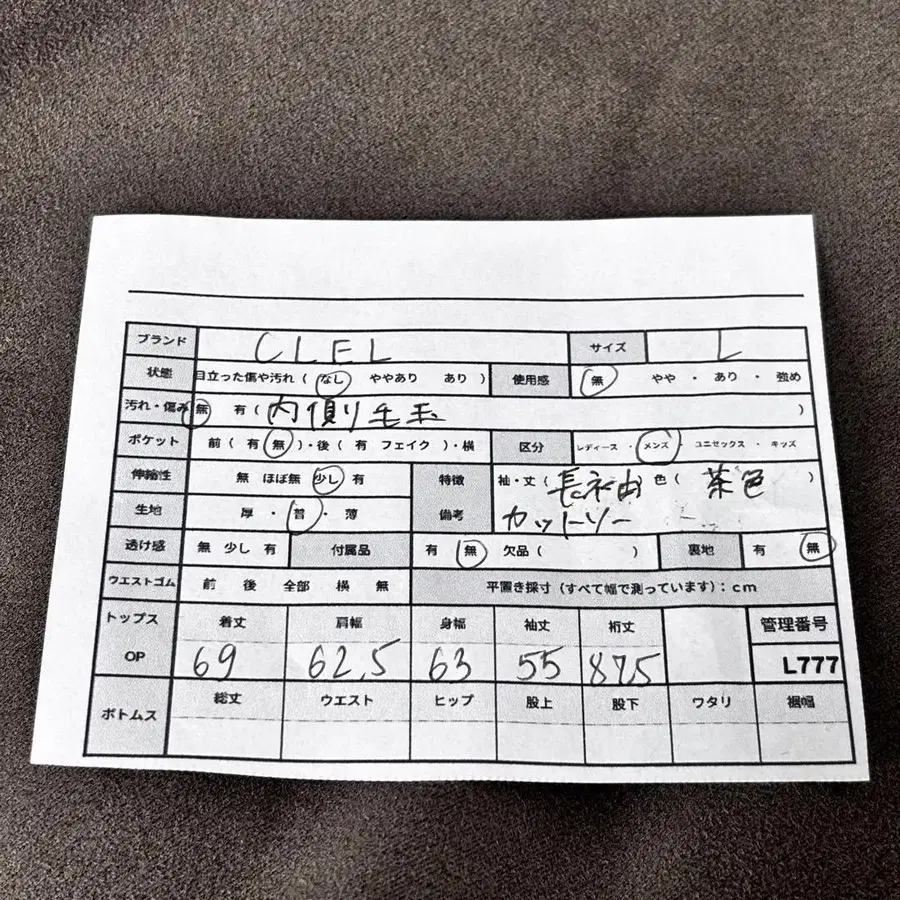 ブランド CLEL サイズ L
状態 目立った傷や汚れ ( なし ややあり あり ) 使用感 無 やや ・ あり ・ 強め
汚れ・傷み 無 有 ( 内側毛玉 )
ポケット 前 ( 有 無 )・後 ( 有 フェイク )・横 区分 レディース ・ メンズ ・ ユニセックス ・ キッズ
伸縮性 無 ほぼ無 少し 有 特徴 袖・丈 ( 長袖 ) 色 ( 茶色 )
生地 厚 ・ 普 ・ 薄 備考 カットソー
透け感 無 少し 有 付属品 有 無 欠品 ( ) 裏地 有 無
ウエストゴム 前 後 全部 横 無 平置き採寸 (すべて幅で測っています) : cm
トップス 着丈 肩幅 身幅 袖丈 裄丈 管理番号
OP 69 62.5 63 55 87.5 L777
ボトムス 総丈 ウエスト ヒップ 股上 股下 ワタリ 裾幅